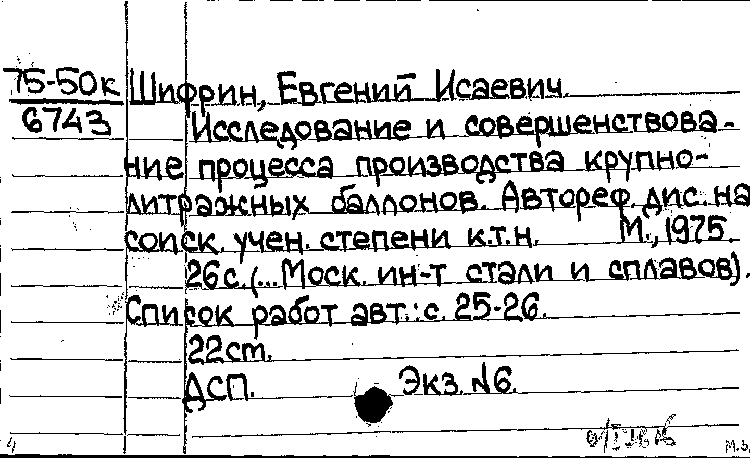 75-50к Шифрин, Евгений Исаевич.
6743 Исследование и совершенствова-
ние процесса производства крупно-
литражных баллонов. Автореф. дис. на
соиск. учен. степени к.т.н. М., 1975.
26 с. (... Моск. ин-т стали и сплавов).
Список работ авт.: с. 25-26.
22 ст.
ДСП. Экз. №6.
4